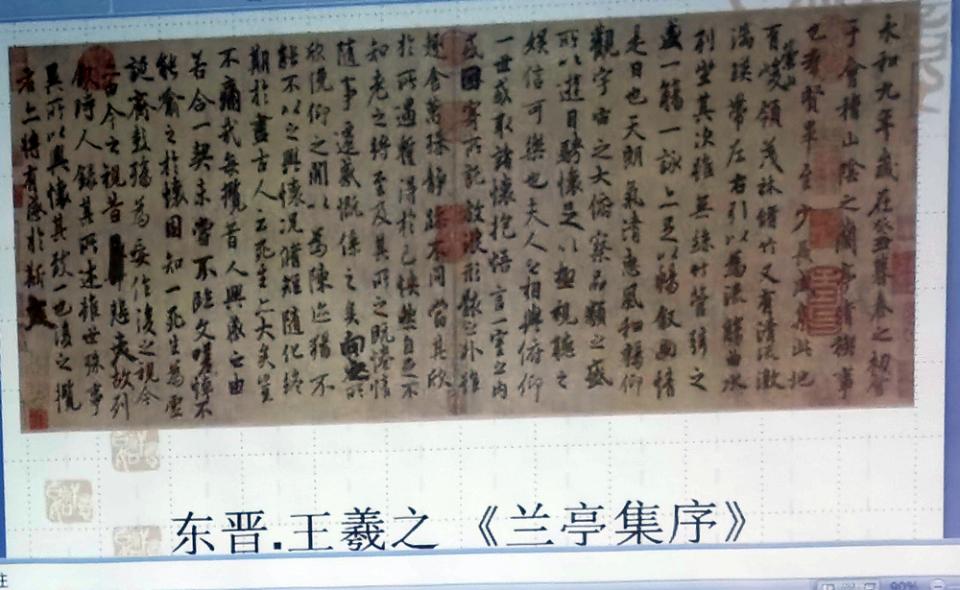 永和九年歲在癸丑暮春之初會
于會稽山陰之蘭亭脩稧事
也羣賢畢至少長咸集此地
有崇山峻領茂林脩竹又有清流激
湍暎帶左右引以為流觴曲水
列坐其次雖無絲竹管弦之
盛一觴一詠亦足以暢敘幽情
是日也天朗氣清惠風和暢仰
觀宇宙之大俯察品類之盛
所以遊目騁懷足以極視聽之
娛信可樂也夫人之相與俯仰
一世或取諸懷抱悟言一室之內
或因寄所託放浪形骸之外雖
趣舍萬殊靜躁不同當其欣
於所遇暫得於己怏然自足不
知老之將至及其所之既惓情
隨事遷感慨係之矣向之所
欣俛仰之閒以為陳迹猶不
能不以之興懷況脩短隨化終
期於盡古人云死生亦大矣豈
不痛哉每攬昔人興感之由
若合一契未嘗不臨文嗟悼不
能喻之於懷固知一死生為虛
誕齊彭殤為妄作後之視今
亦由今之視昔悲夫故列
敘時人錄其所述雖世殊事
異所以興懷其致一也後之攬
者亦將有感於斯文
东晋.王羲之《兰亭集序》
注
90%